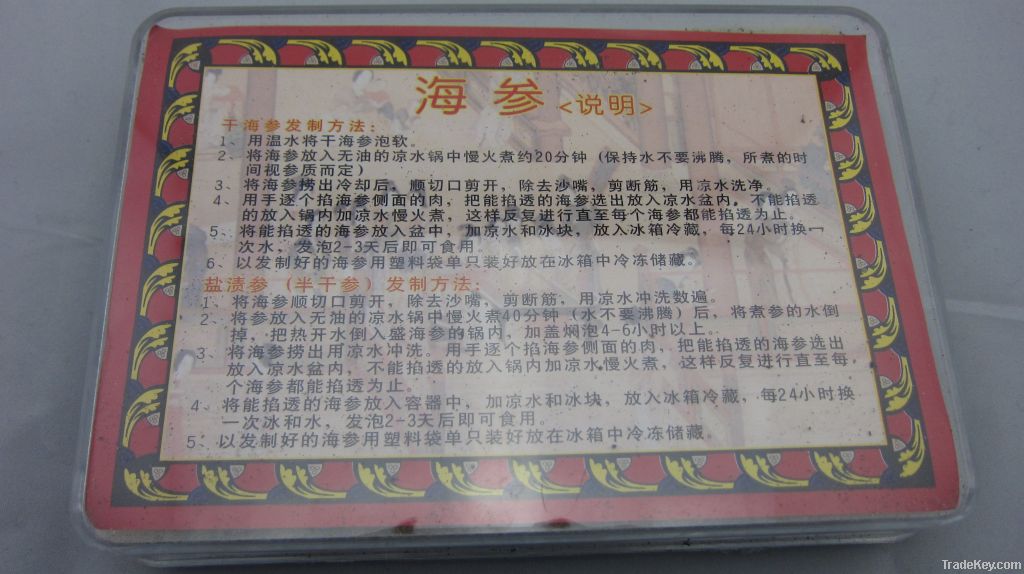 海参<说明>
干海参发制方法：
1、用温水将干海参泡软。
2、将海参放入无油的凉水锅中慢火煮约20分钟（保持水不要沸腾，所煮的时
间视参质而定）
3、将海参捞出冷却后，顺切口剪开，除去沙嘴，剪断筋，用凉水洗净。
4、用手逐个掐海参侧面的肉，把能掐透的海参选出放入凉水盆内，不能掐透
的放入锅内加凉水慢火煮，这样反复进行直至每个海参都能掐透为止。
5、将能掐透的海参放入盆中，加凉水和冰块，放入冰箱冷藏，每24小时换一
次水，发泡2-3天后即可食用。
6、以发制好的海参用塑料袋单只装好放在冰箱中冷冻储藏。
盐渍参（半干参）发制方法：
1、将海参顺切口剪开，除去沙嘴，剪断筋，用凉水冲洗数遍。
2、将参放入无油的凉水锅中慢火煮40分钟（水不要沸腾）后，将煮参的水倒
掉，把热开水倒入盛海参的锅内，加盖焖泡4-6小时以上。
3、将海参捞出用凉水冲洗。用手逐个掐海参侧面的肉，把能掐透的海参选出
放入凉水盆内，不能掐透的放入锅内加凉水慢火煮，这样反复进行直至每
个海参都能掐透为止。
4、将能掐透的海参放入容器中，加凉水和冰块，放入冰箱冷藏，每24小时换
一次冰和水，发泡2-3天后即可食用。
5、以发制好的海参用塑料袋单只装好放在冰箱中冷冻储藏。
TradeKey.com